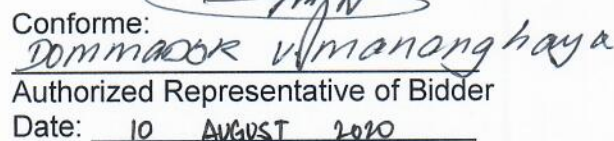 Conforme:
DOMMADOR V. mananghaya
Authorized Representative of Bidder
Date: 10 AUGUST 2020